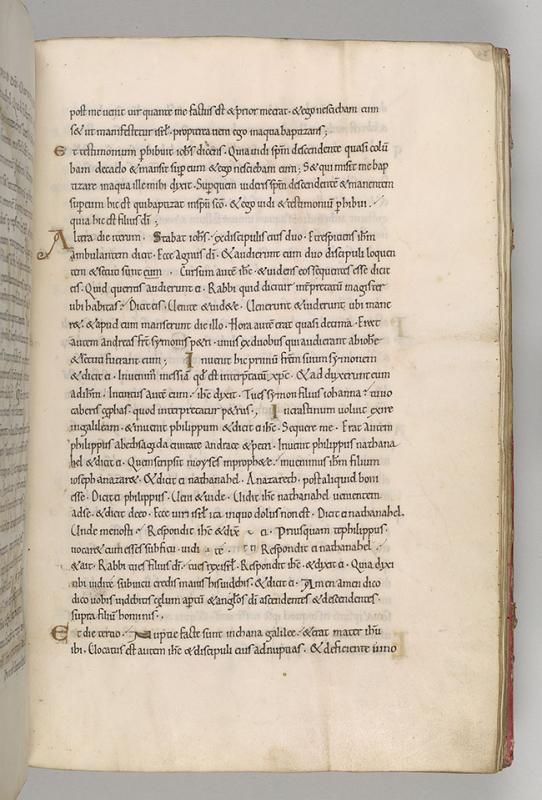 post me uenit uir qui ante me factus est · & prior me erat · & ego nesciebam eum
sed ut manifestetur isrl̄ · propterea ueni ego in aqua baptizans ;
Et testimonium phibuit iohs̄ dicens · Quia uidi sp̄m descendente quasi colū
bam de caelo & mansit sup eum & ego nesciebam eum ; Sed qui misit me bap
tizare in aqua ille mihi dixit · Sup quem uideris sp̄m descendentē & manentem
sup eum hic est qui baptizat in sp̄u sc̄o · & ego uidi & testimoniū phibui ·
quia hic est filius dī ;
Altera die iterum · Stabat iohs̄ · & ex discipulis eius duo · Et respiciens ihm̄
ambulantem dicit · Ecce agnus dī · & audierunt eum duo discipuli loquen
tem & secuti sunt eum · Cursum autē ihc̄ · & uidens eos sequentes se dicit
eis · Quid queritis audierunt ei · Rabbi quod dicitur interpretatū magister
ubi habitas · Dicit eis · Uenite & uidete · Uenerunt & uiderunt ubi mane
ret & apud eum manserunt die illo · Hora autē erat quasi decima · Erat
autem andreas fr̄ symonis petri · unus ex duobus qui audierant ab iohe
& secuti fuerant eum ; Inuenit hic primū frēm suum symonem
& dicit ei · Inuenim̄ messiā qd̄ est interpretatū xp̄c · & adduxerunt eum
ad ihm̄ · Intuitus autē eum · ihc̄ dixit · Tu es symon filius iohanna · tu uo
caberis cephas · quod interpretatur petrus ; In crastinum uoluit exire
in galileam · & inuenit philippum & dicit ei ihc̄ · Sequere me · Erat autem
philippus a bethsagida ciuitate andreae & petri · Inuenit philippus nathana
hel & dicit ei · Quem scripsit moyses in prophete · inuenimus ihm̄ filium
ioseph a nazareth · & dicit ei nathanahel · A nazareth · potest aliquid boni
esse · Dicit ei philippus · Ueni & uide · Uidit ihc̄ nathanahel uenientem
ad se · & dicit de eo · Ecce uiri isrl̄ita in quo dolus non est · Dicit ei nathanahel ·
Unde me nosti · Respondit ihc̄ & dix ei · Priusquam te philippus
uocaret cum esses sub ficu · uidi te · Respondit ei nathanahel
& ait · Rabbi tu es filius dī · tu es rex isrl̄ · Respondit ihc̄ · & dixit ei · Quia dixi
tibi uidi te sub ficu credis maius his uidebis · & dicit ei · Amen amen dico
dico uobis uidebitis cęlum aptū & anglos dī ascendentes & descendentes ·
supra filiū hominis ·
Et die tertio · Nuptie facte sunt in chana galileę · & erat mater ihū
ibi · Uocatus est autem ihc̄ & discipuli eius ad nuptias · & deficiente uino